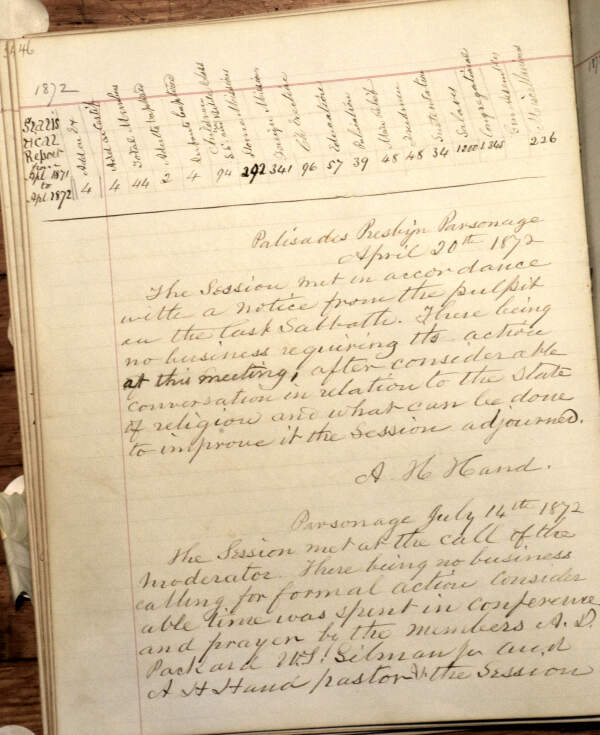 1872
Statis
tical
Report
from
Apl 1871
to
Apl 1872
Add on Ex 4
Add on Certif 4
Total Members 44
Adults baptised
Infants baptised 4
Children &
S.S. and Bible Class 94
Home Missions 292
Foreign Mission 341
Ch Erection 96
Education 57
Publication 39
Mini Relief 48
Freedmen 48
Sustentation 34
Salaries
Congregational
Miscellaneous 226
Palisades Presbyn Parsonage
April 20th 1872
The Session met in accordance
with a notice from the pulpit
on the last Sabbath. There being
no business requiring its action
at this meeting, after considerable
conversation in relation to the State
of religion and what can be done
to improve it the Session adjourned.
A H Hand.
Parsonage July 14th 1872
The Session met at the call of the
moderator. There being no business
calling for formal action consider
able time was spent in conference
and prayer by the members A. D.
Packard W.S. Gilman Jr and
A H Hand pastor the Session